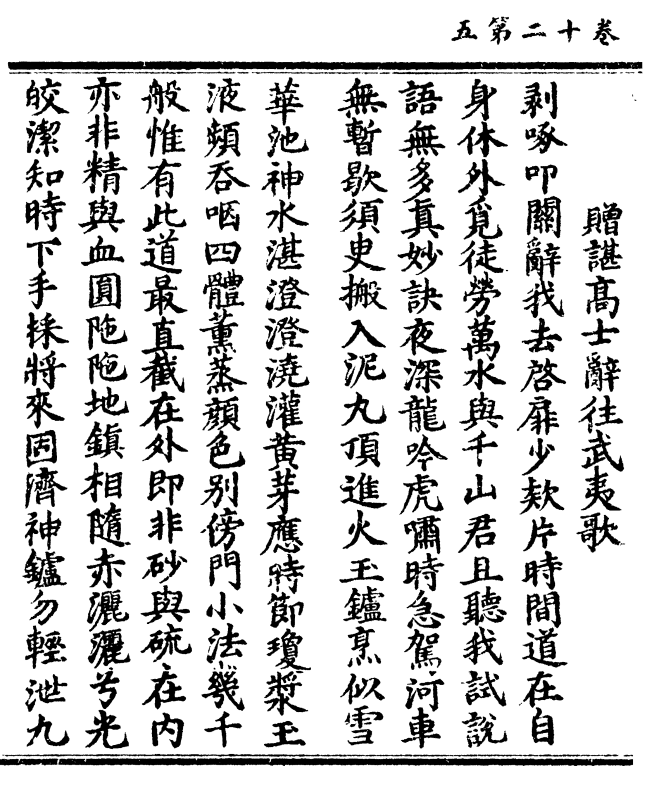 卷十二第五
贈諶高士辭往武夷歌
剥啄叩關辭我去啓扉少欵片時間道在自
身休外覓徒勞萬水與千山君且聽我試說
語無多真妙訣夜深龍吟虎嘯時急駕河車
無暫歇須臾搬入泥丸頂進火玉鑪烹似雪
華池神水湛澄澄澆灌黄芽應時節瓊漿玉
液頻吞嚥四體薰蒸顔色别傍門小法幾千
般惟有此道最直截在外即非砂與硫在内
亦非精與血圓陁陁地鎮相隨赤灑灑兮光
皎潔知時下手採將來固濟神鑪勿輕泄九